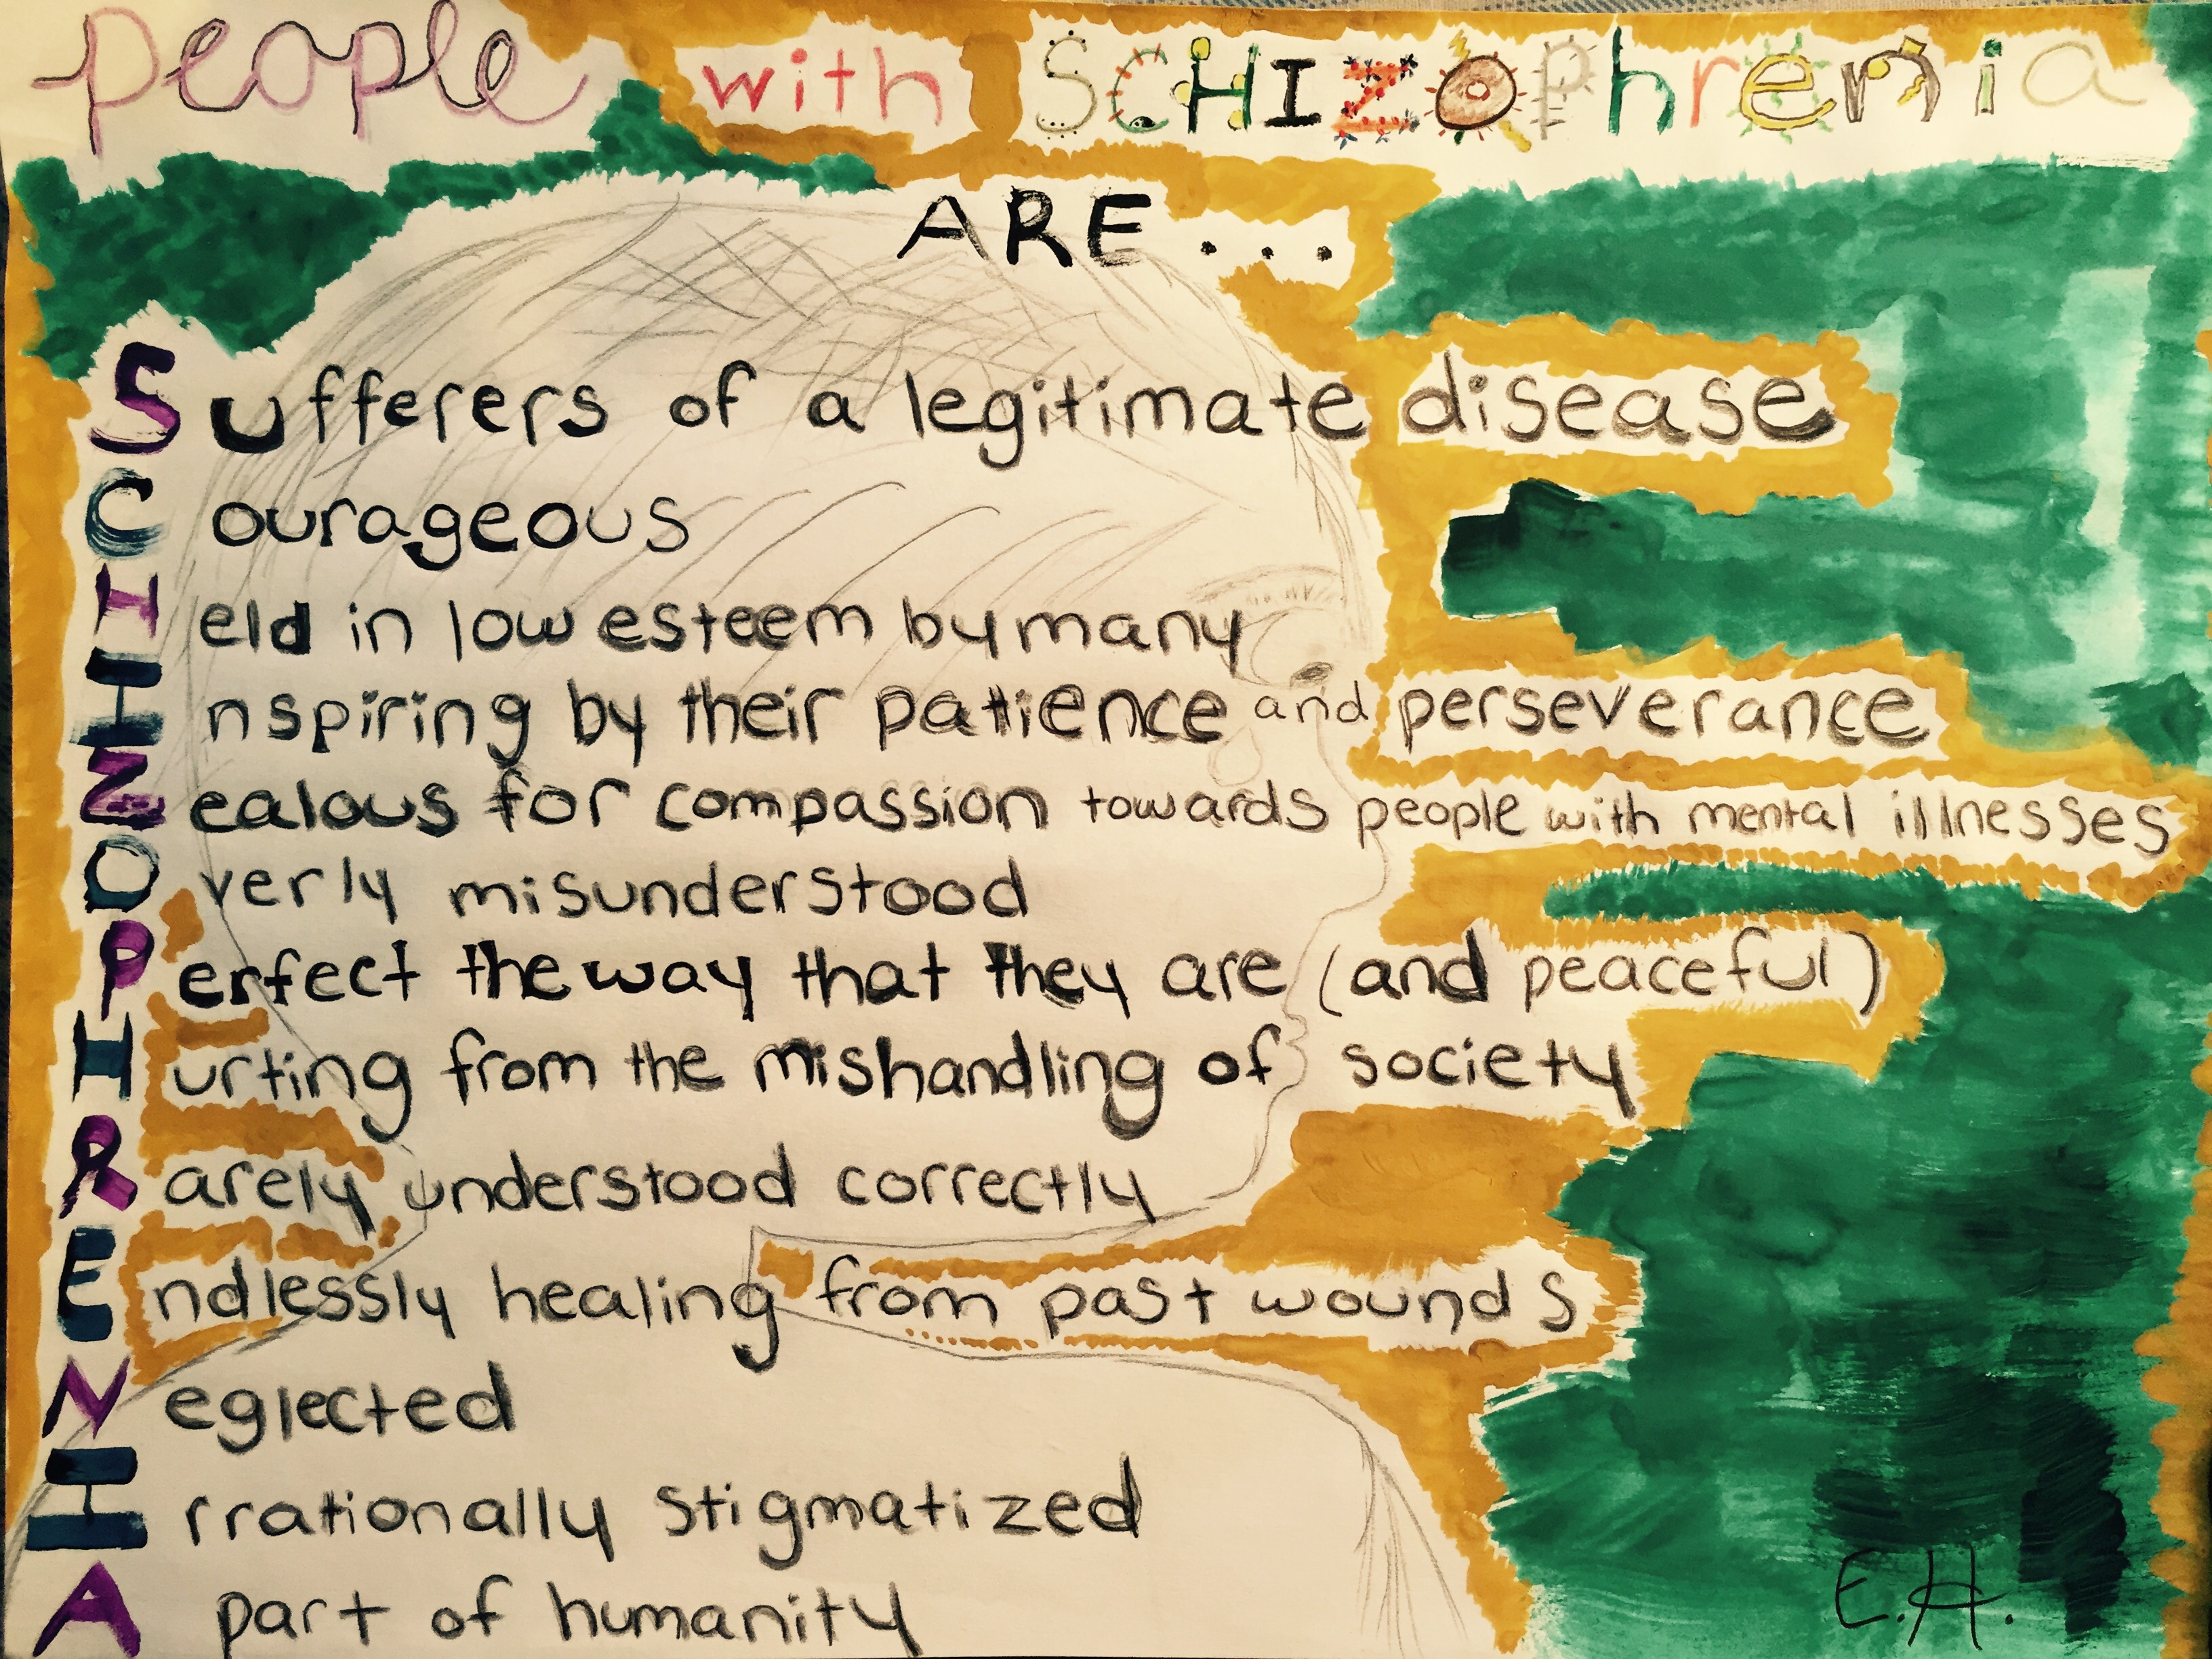 people with SCHIZOPhrenia
ARE...
Sufferers of a legitimate disease
Courageous
Held in low esteem by many
Inspiring by their patience and perseverance
Zealous for compassion towards people with mental illnesses
Overly misunderstood
Perfect the way that they are (and peaceful)
Hurting from the mishandling of society
Rarely understood correctly
Endlessly healing from past wounds
Neglected
Irrationally stigmatized
A part of humanity
E.H.